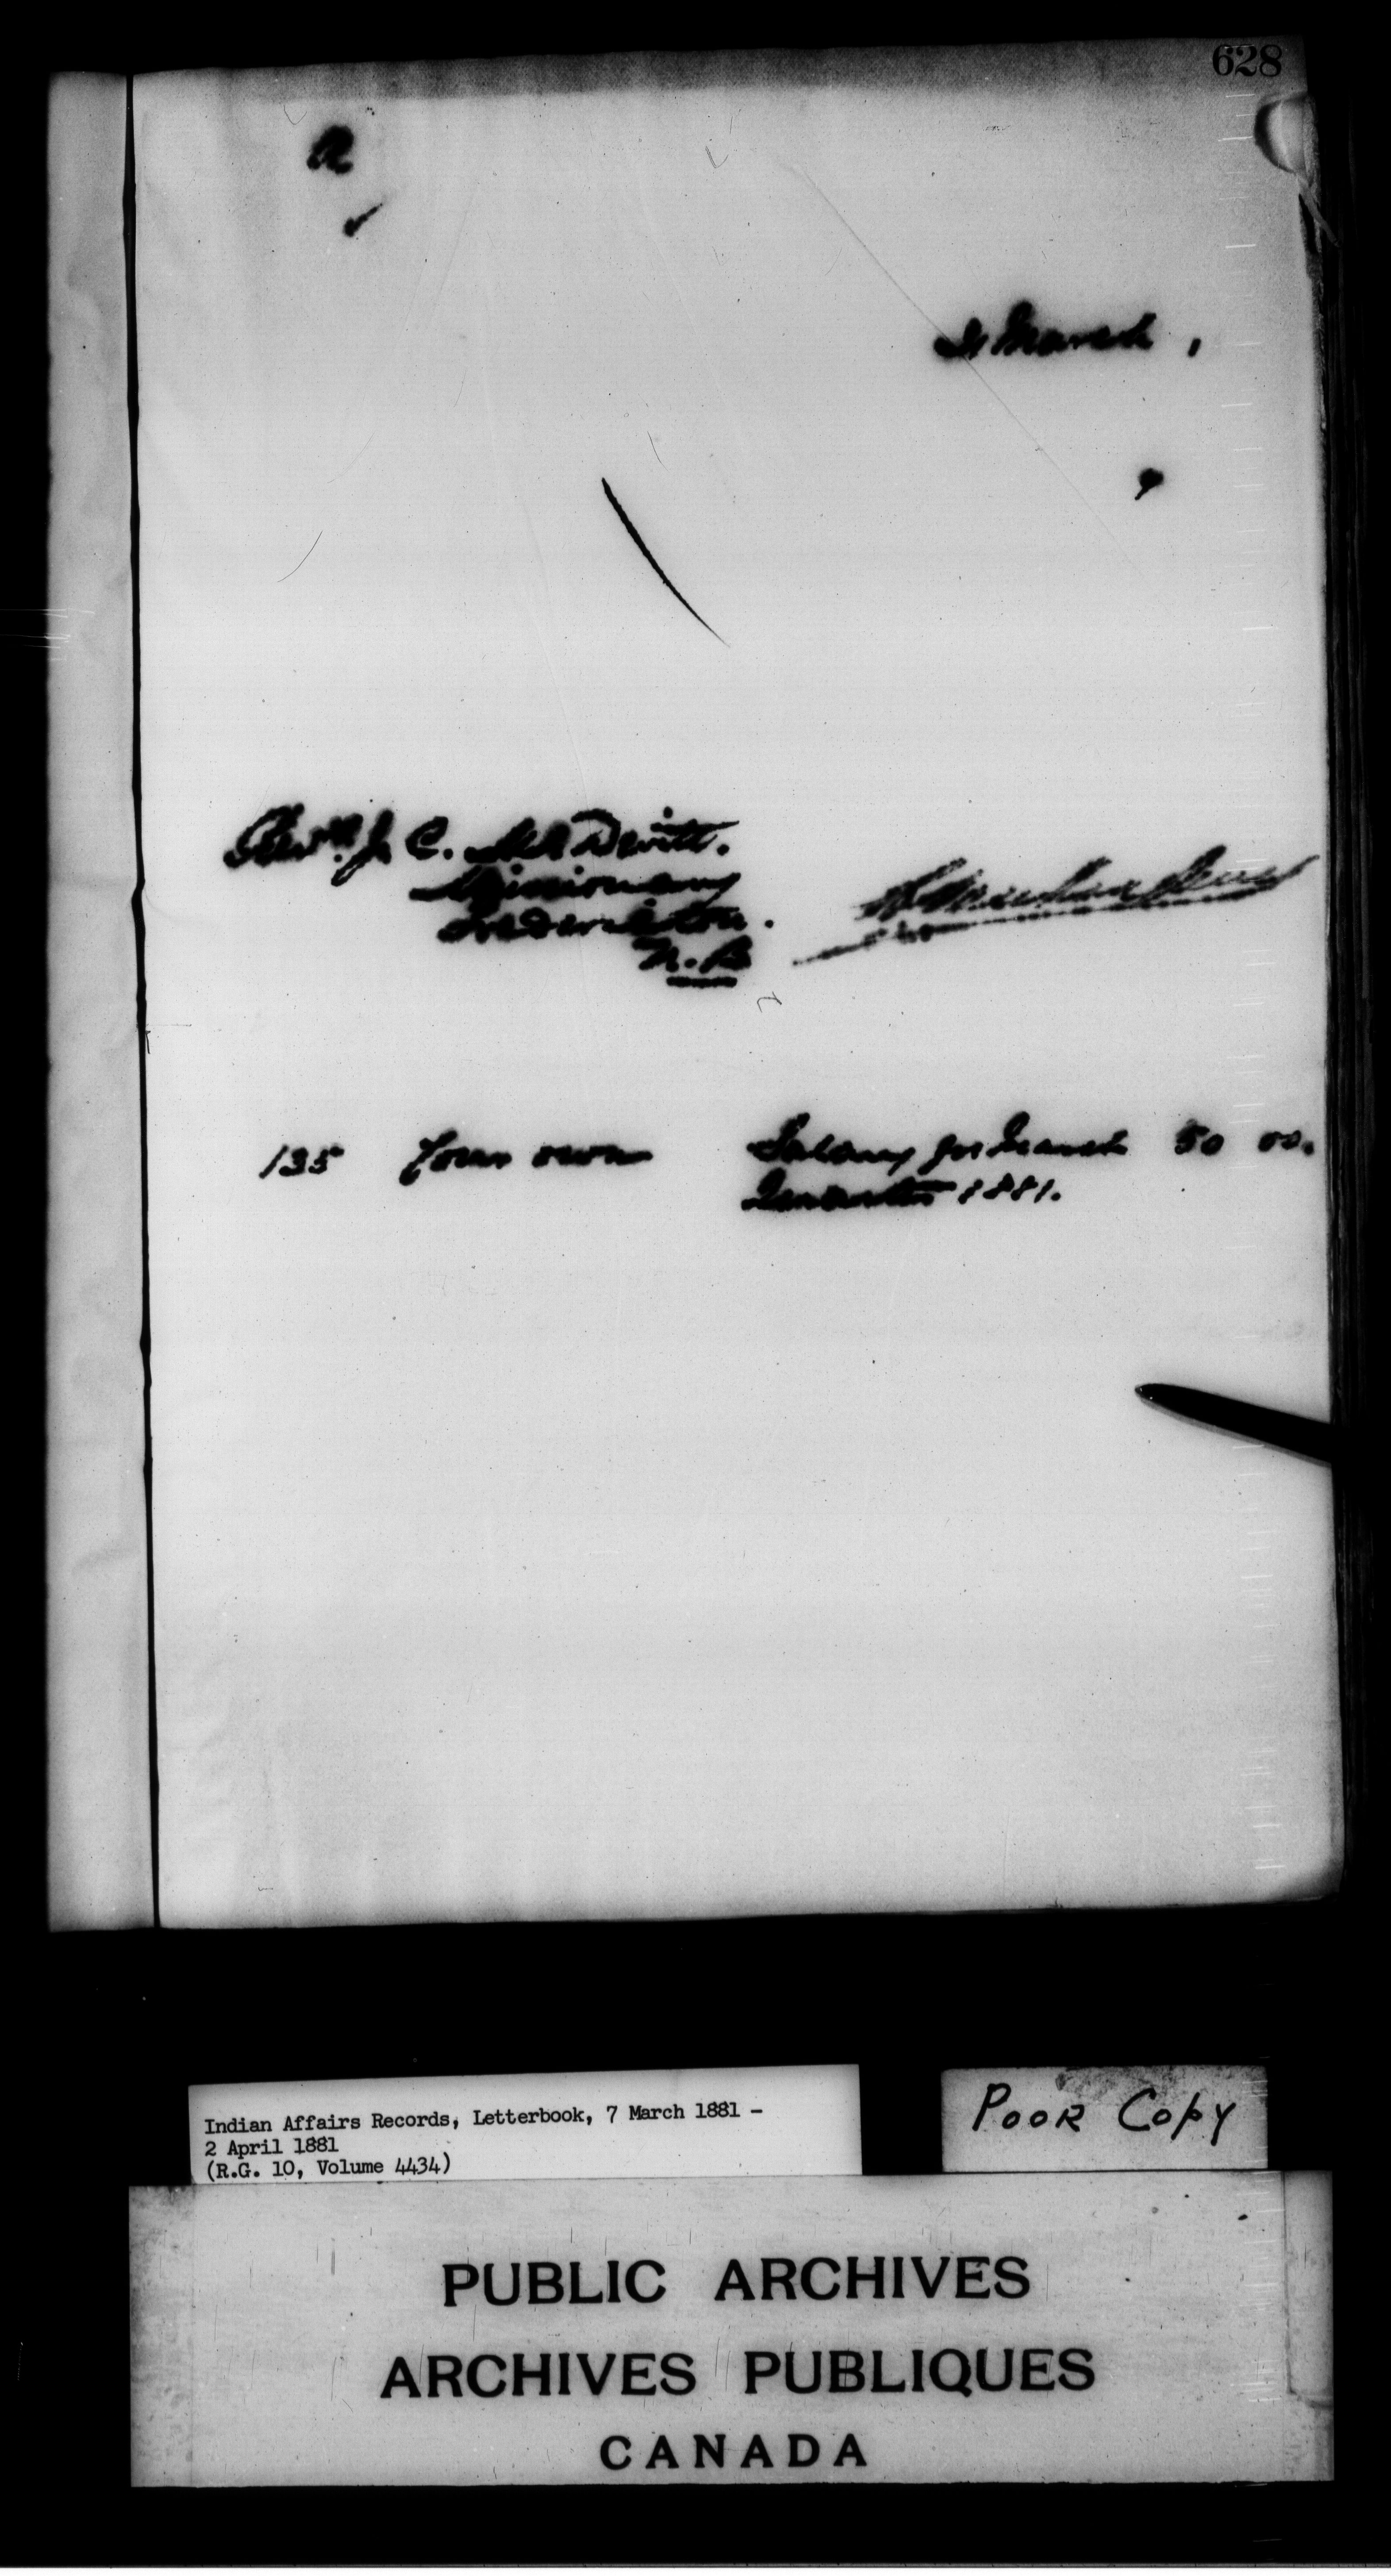 628
March,
Revd. J. C. McDevitt.
Missionary
Fredericton.
N.B
135 Your own Salary for March 50 00.
Quarter 1881.
Indian Affairs Records, Letterbook, 7 March 1881 -
2 April 1881
(R.G. 10, Volume 4434)
POOR COPY
PUBLIC ARCHIVES
ARCHIVES PUBLIQUES
CANADA